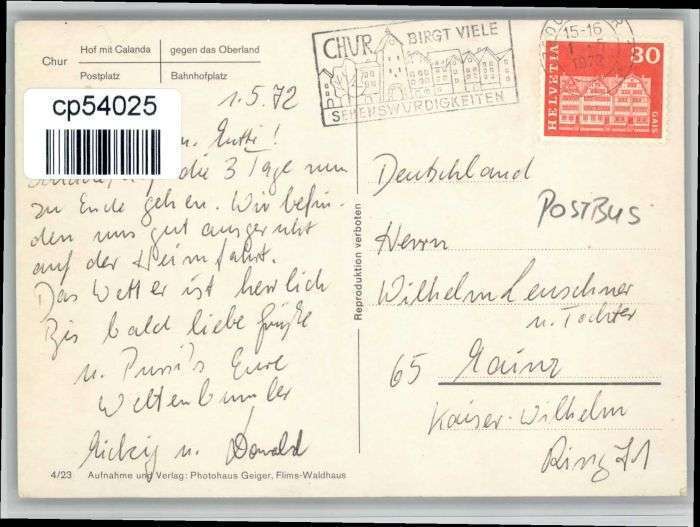 Chur
Hof mit Calanda
gegen das Oberland
Postplatz
Bahnhofplatz
cp54025
1.5.72
u. Mutti!
die 3 Tage nun
zu Ende gehen. Wir befin-
den uns gut ausgeruht
auf der Heimfahrt.
Das Wetter ist herrlich
Bis bald liebe Grüße
u. Pussi's Eure
Weltenbumler
Mickig u. Donald
4/23 Aufnahme und Verlag: Photohaus Geiger, Flims-Waldhaus
Reproduktion verboten
CHUR BIRGT VIELE
SEHENSWÜRDIGKEITEN
15-16
HELVETIA
30
GAIS
Deutschland
POSTBUS
Herrn
Wilhelm Leuschner
u. Tochter
65 Mainz
Kaiser-Wilhelm
Ring 71